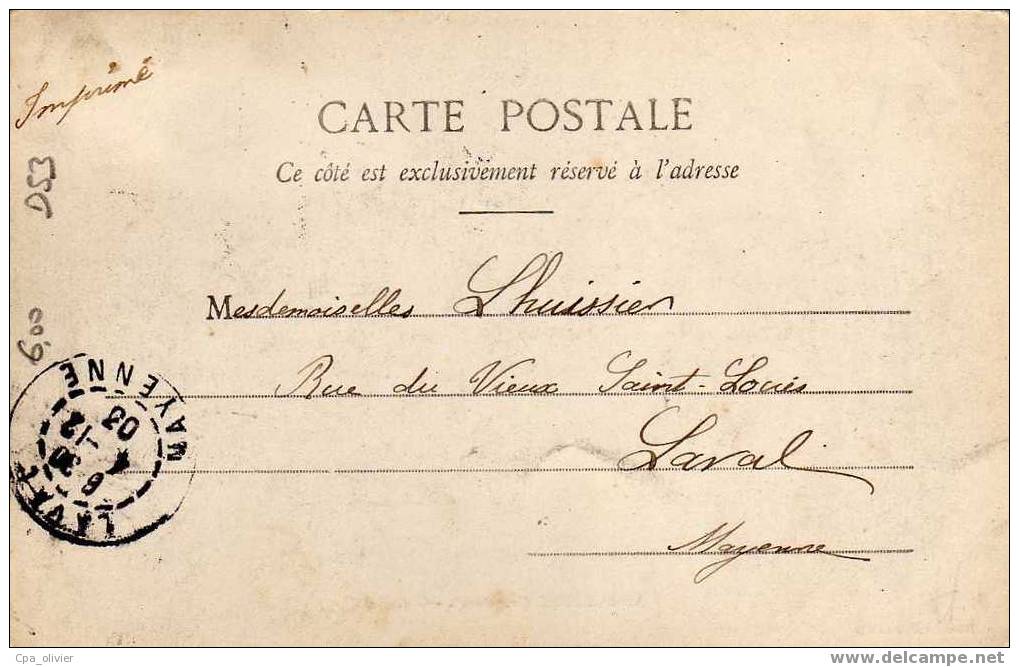 Imprimé
CARTE POSTALE
Ce côté est exclusivement réservé à l'adresse
D53
6,00
Mesdemoiselles Lhuissier
Rue du Vieux Saint-Louis
Laval
Mayenne
LAVAL
MAYENNE
-12
03
Cpa_olivier
www.delcampe.net